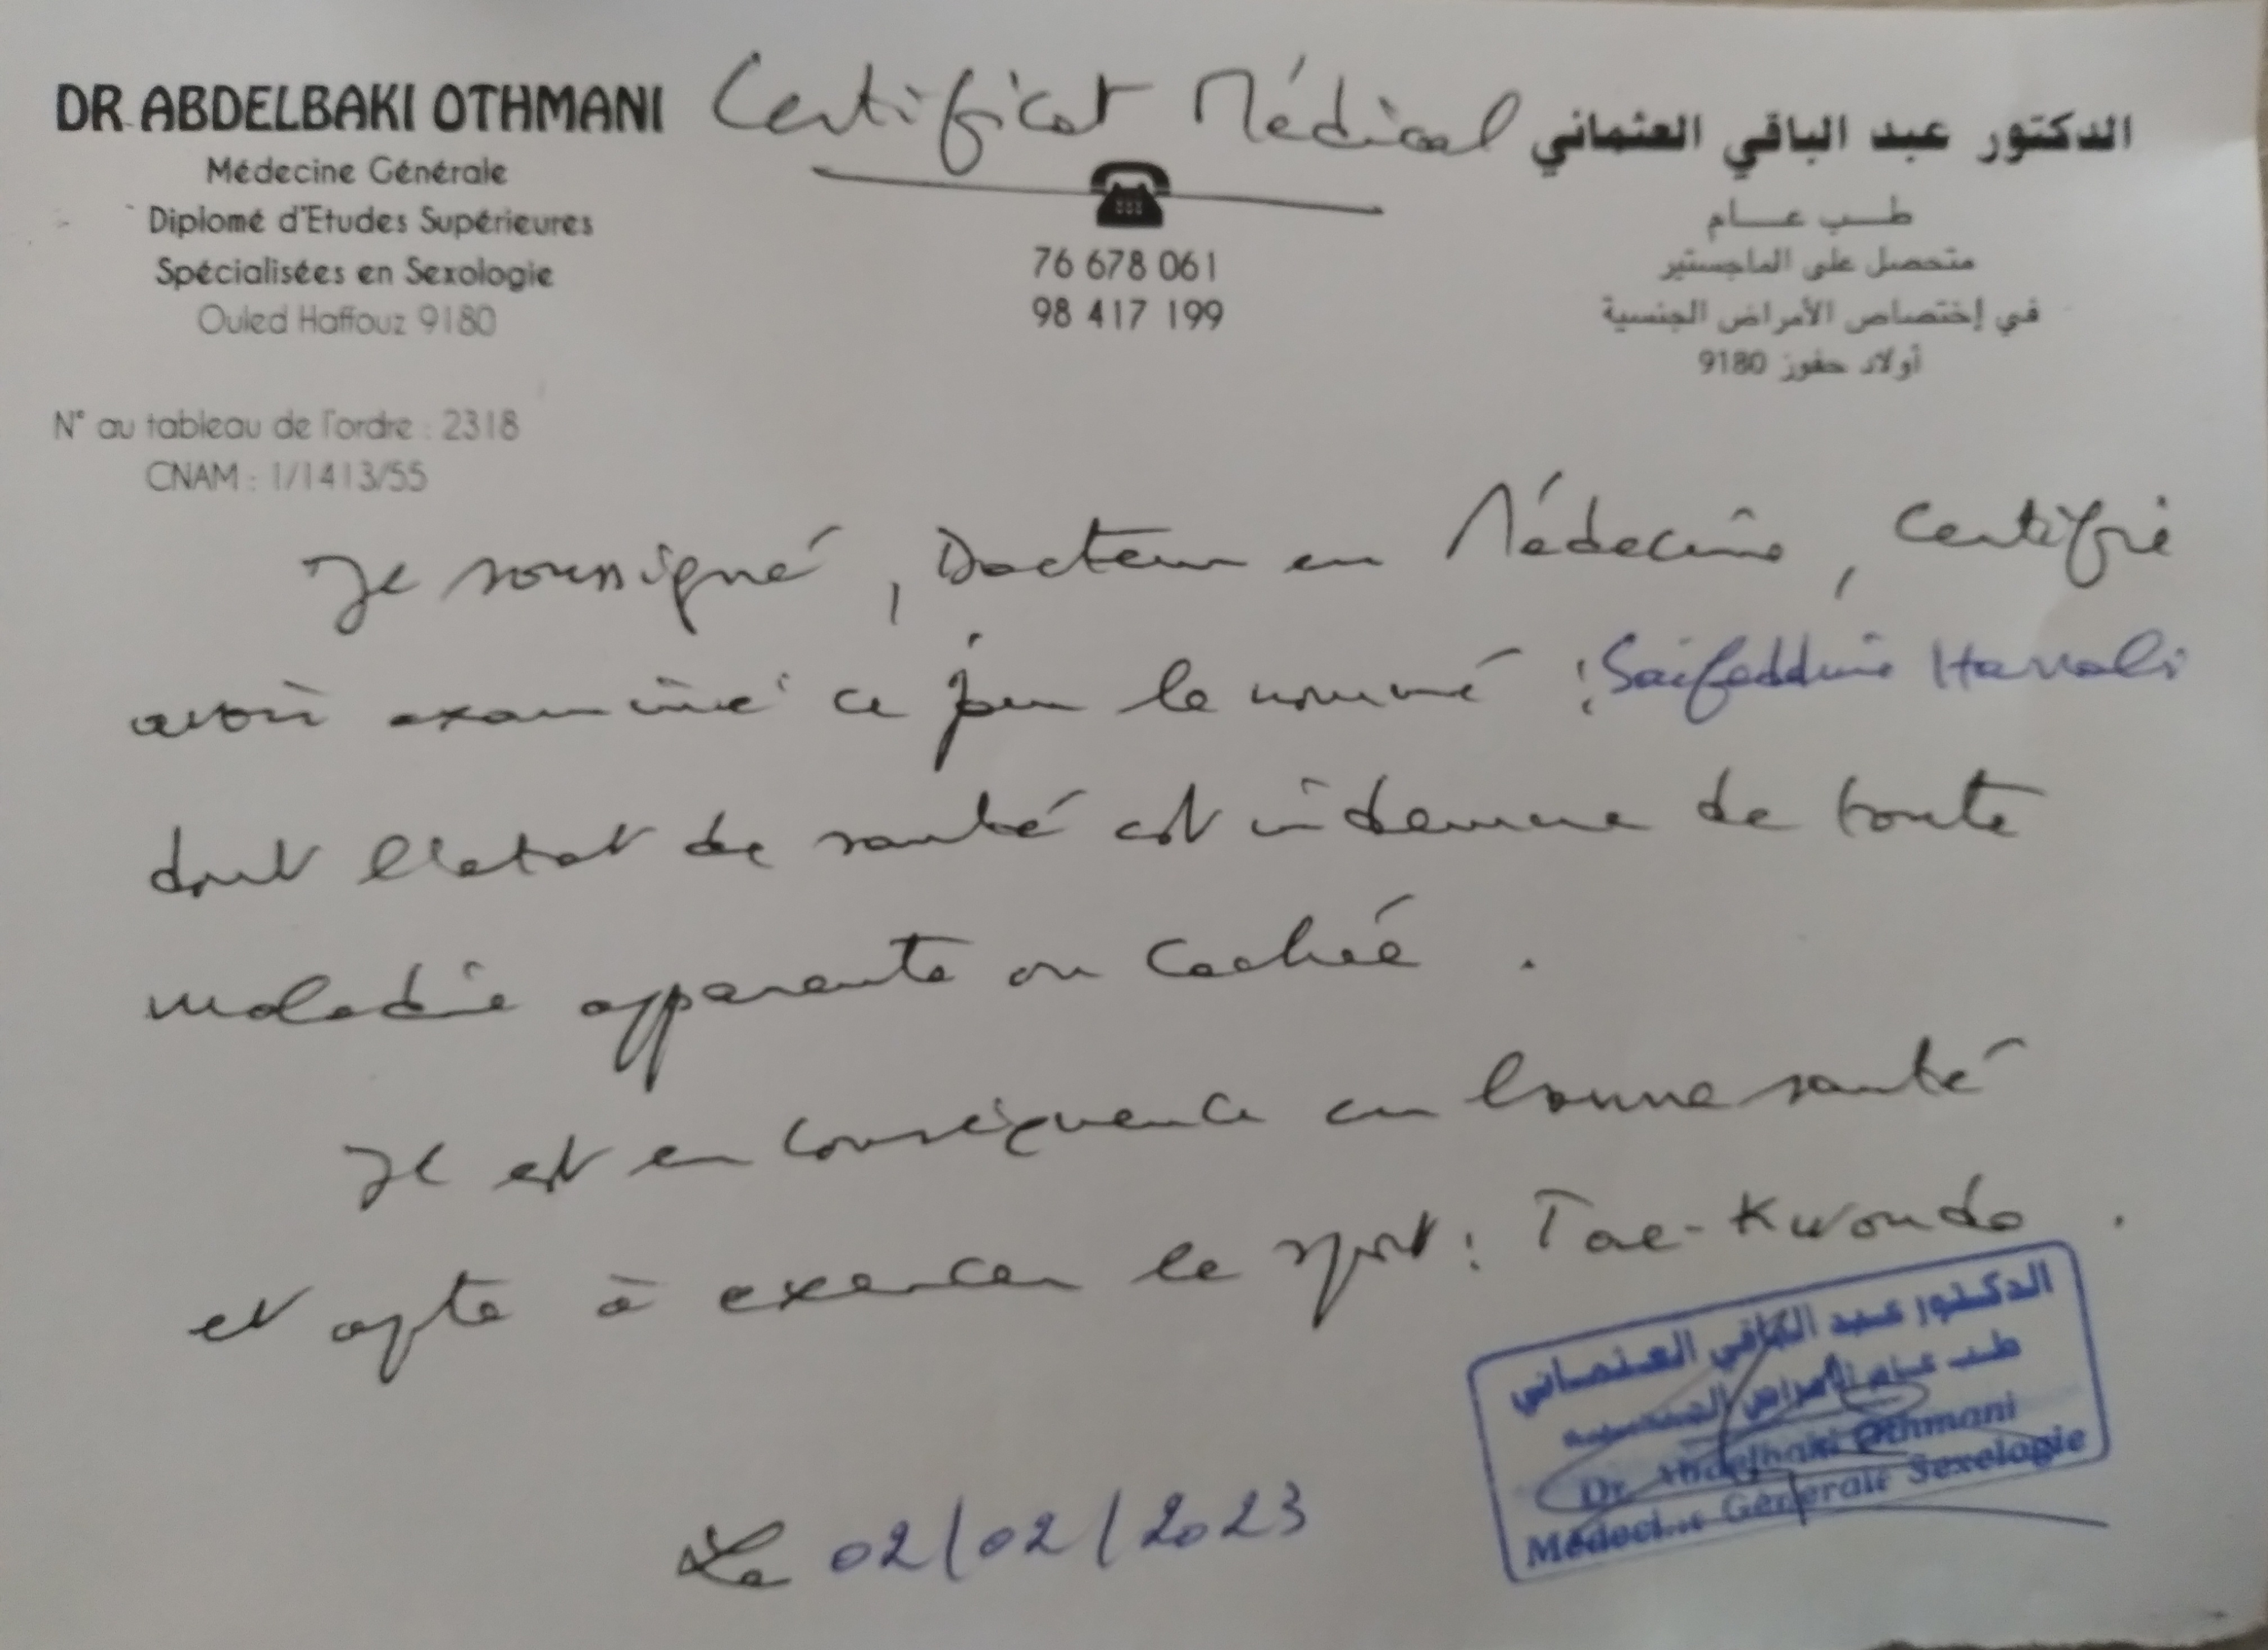 DR ABDELBAKI OTHMANI
Médecine Générale
Diplomé d'Etudes Supérieures
Spécialisées en Sexologie
Ouled Haffouz 9180
N° au tableau de l'ordre : 2318
CNAM : 1/1413/55
Certificat Médical
76 678 061
98 417 199
الدكتور عبد الباقي العثماني
طب عام
متحصل على الماجستير
في إختصاص الأمراض الجنسية
أولاد حفوز 9180
Je soussigné, Docteur en Médecine, Certifie
avoir examiné ce jour le nommé : Saifeddine
dont l'etat de santé est indemne de toute
maladie apparente ou cachée .
Il est en conséquence en bonne santé
et apte à exercer le sport : Tae-Kwondo .
Le 02/02/2023
الدكتور عبد الباقي العثماني
طب عام الأمراض الجنسية
Dr. Abdelbaki Othmani
Médecine Générale Sexologie